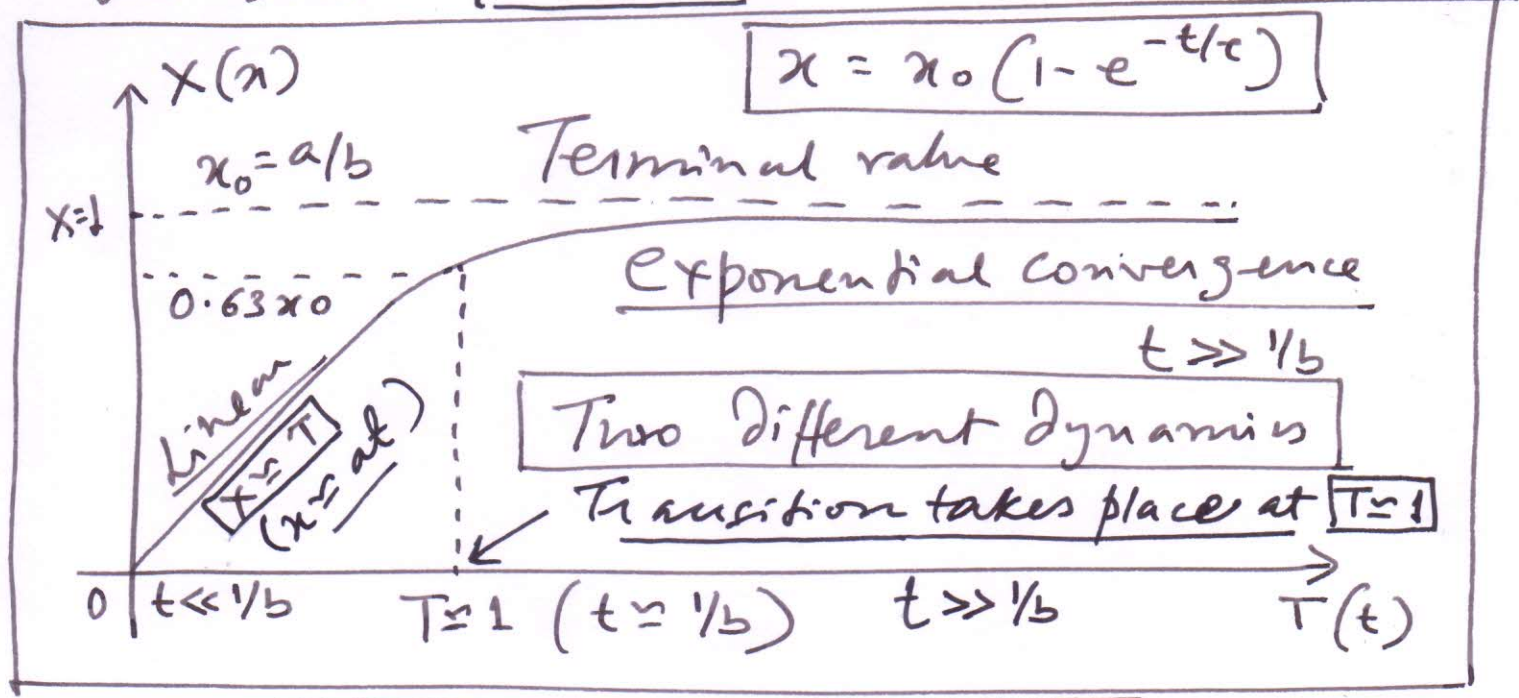 X(x)
x = x₀(1 - e^(-t/τ))
x₀ = a/b
Terminal value
X=1
0.63x₀
exponential convergence
t >> 1/b
Linear
X ≃ T
(x ≃ at)
Two Different Dynamics
Transition takes place at T≃1
0
t << 1/b
T≃1 (t ≃ 1/b)
t >> 1/b
T(t)